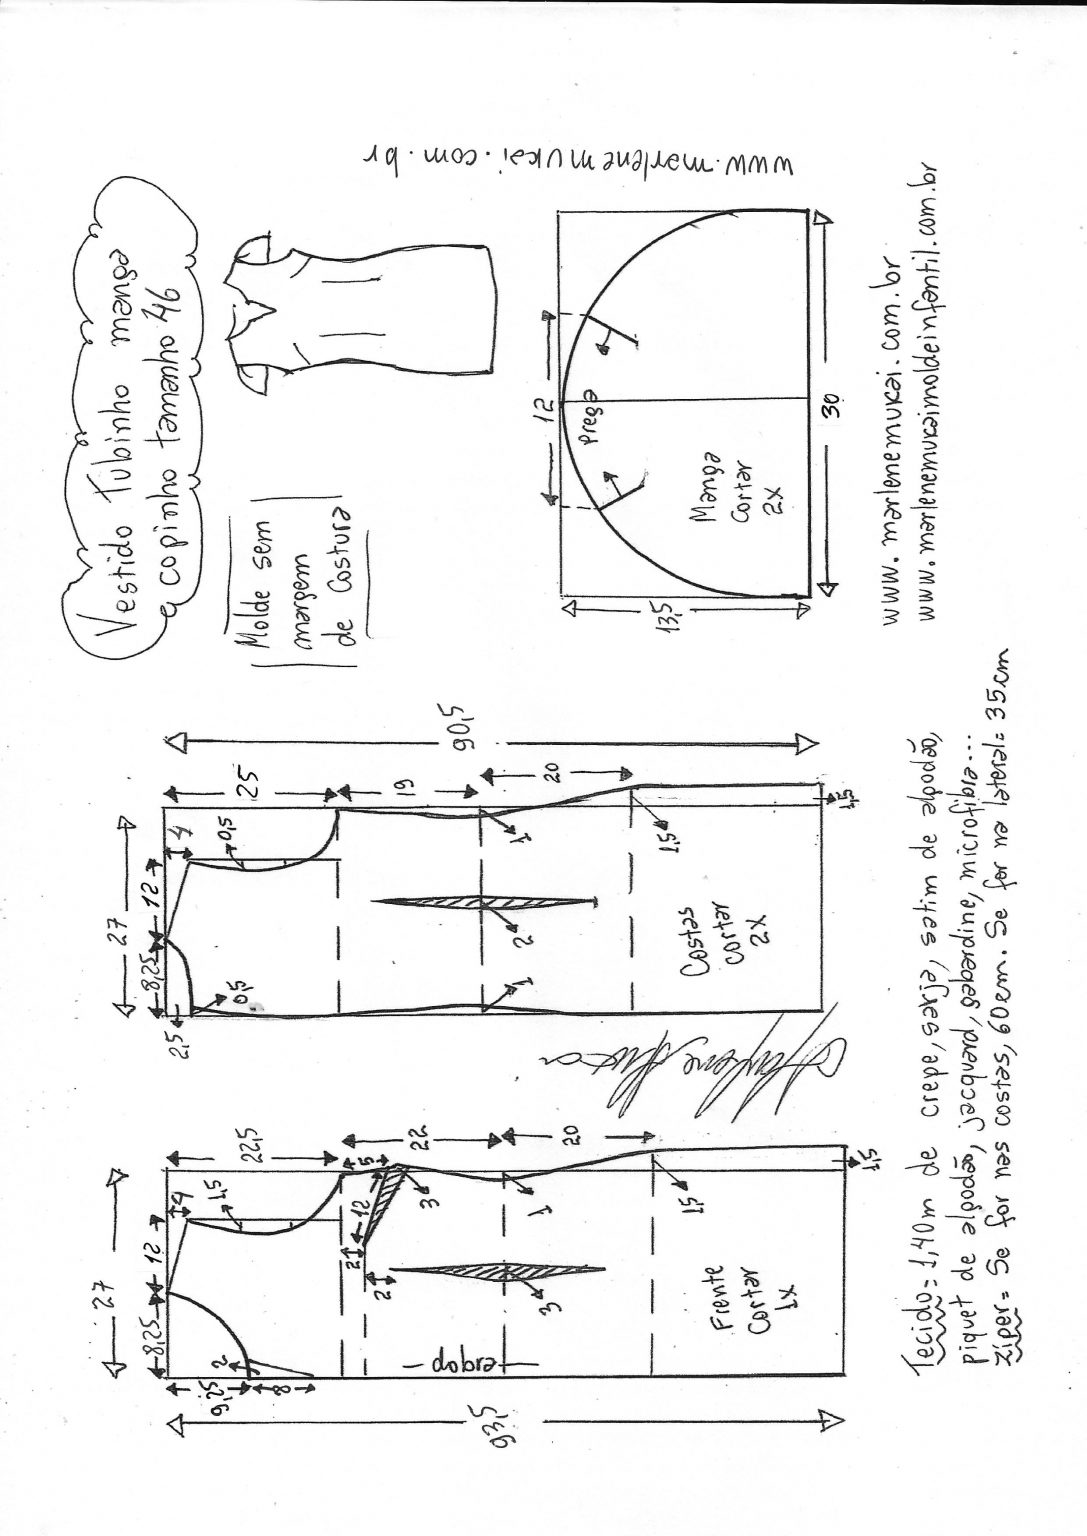 Vestido Tubinho manga
copinho tamanho 46
Molde sem
margem
de costura
www.marlenemukai.com.br
12
Prega
Manga
Cortar
2x
13,5
30
www.marlenemukai.com.br
www.marlenemukaimoldeinfantil.com.br
27
8,25
12
4
22,5
1,5
9,25
8
2
5
22
12
3
2
2
20
1
3
1,5
1,5
dobra
93,5
Frente
Cortar
1x
27
8,25
12
4
25
0,5
2,5
0,5
19
20
90,5
1
2
1
1,5
1,5
Costas
Cortar
2x
Tecido = 1,40m de crepe, sarja, satim de algodão,
piquet de algodão, jacquard, gabardine, microfibra...
Ziper = Se for nas costas, 60cm. Se for na lateral = 35cm